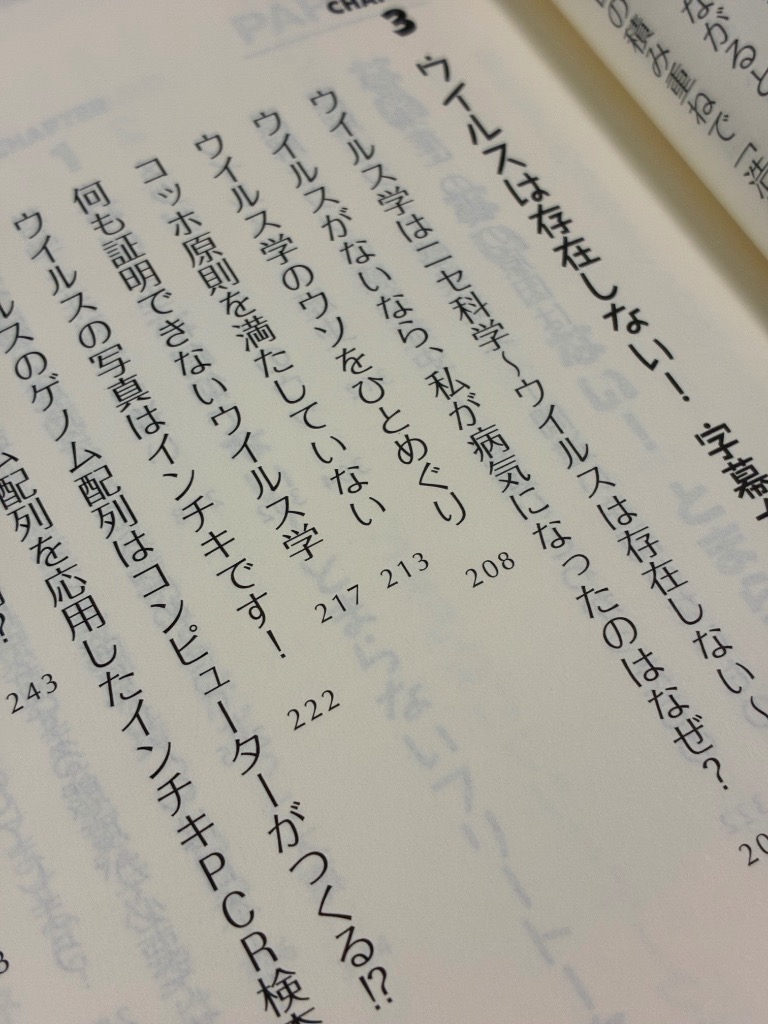 CHA
3
ウイルスは存在しない! 字幕
ウイルス学はニセ科学〜ウイルスは存在しない〜
ウイルスがないなら、私が病気になったのはなぜ?
ウイルス学のウソをひとめぐり 208
コッホ原則を満たしていない 213
何も証明できないウイルス学 217
ウイルスの写真はインチキです! 222
ルスのゲノム配列はコンピューターがつくる!?
ム配列を応用したインチキPCR検査
? 243
ながると
の積み重ねで「浩